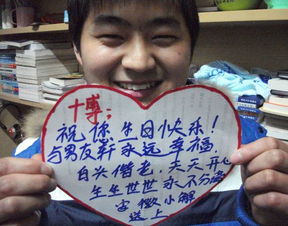 十博：
祝您生日快乐！
与男友轩永远幸福，
白头偕老，天天开心
生生世世永不分离
宫微小解
送上